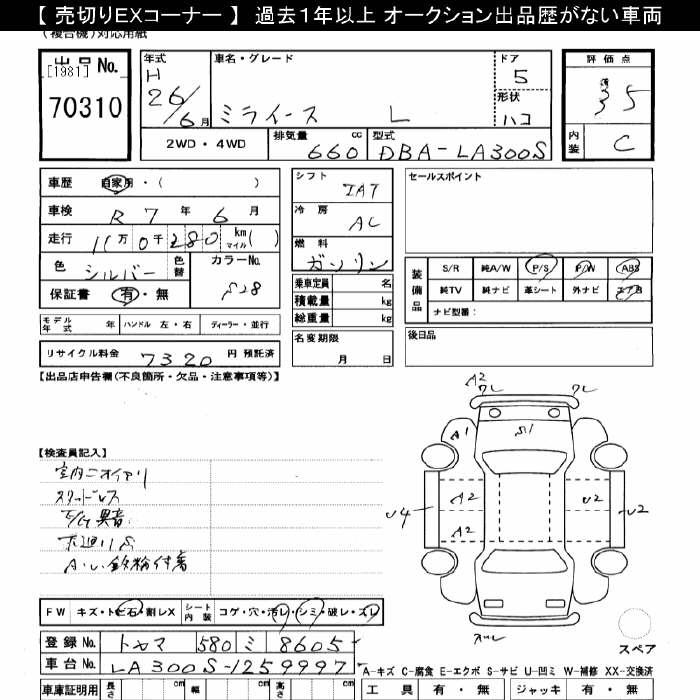 【 売切りEXコーナー 】 過去1年以上 オークション出品歴がない車両
(複合機)対応用紙
出品 No.
[1981]
70310
年式
H
26/6月
車名・グレード
ミライース L
ドア
5
形状
ハコ
評価点
3.5
内装
C
2WD・4WD
排気量 cc
660
型式
DBA-LA300S
車歴 自家用・( )
車検 R 7 年 6 月
走行 11万 0千 280 km マイル ( )
色 シルバー 色替
カラーNo.
S28
保証書 有・無
シフト
IAT
冷房
AC
燃料
ガソリン
乗車定員 名
積載量 kg
総重量 kg
名変期限
月 日
セールスポイント
装備品
S/R 純A/W P/S P/W ABS
純TV 純ナビ 革シート 外ナビ エアB
ナビ型番:
後日品
モデル年式 年 ハンドル 左・右 ディーラー・並行
リサイクル料金 7320 円 預託済
【出品店申告欄(不良箇所・欠品・注意事項等)】
【検査員記入】
室内ニオイアリ
スタッドレス
下廻りS
A・U 鉄粉付着
A2
A1
S1
A2
A2
U4
U2
U2
スペア
FW キズ・トビ石・割レX シート内装 コゲ・穴・汚レ・シミ・破レ・スレ
登録 No. トヤマ 580 ミ 8605
車台 No. LA300S-1259997
A-キズ C-腐食 E-エクボ S-サビ U-凹ミ W-補修 XX-交換済
車庫証明用 長さ cm 幅 cm 高さ cm
工具 有・無 ジャッキ 有・無